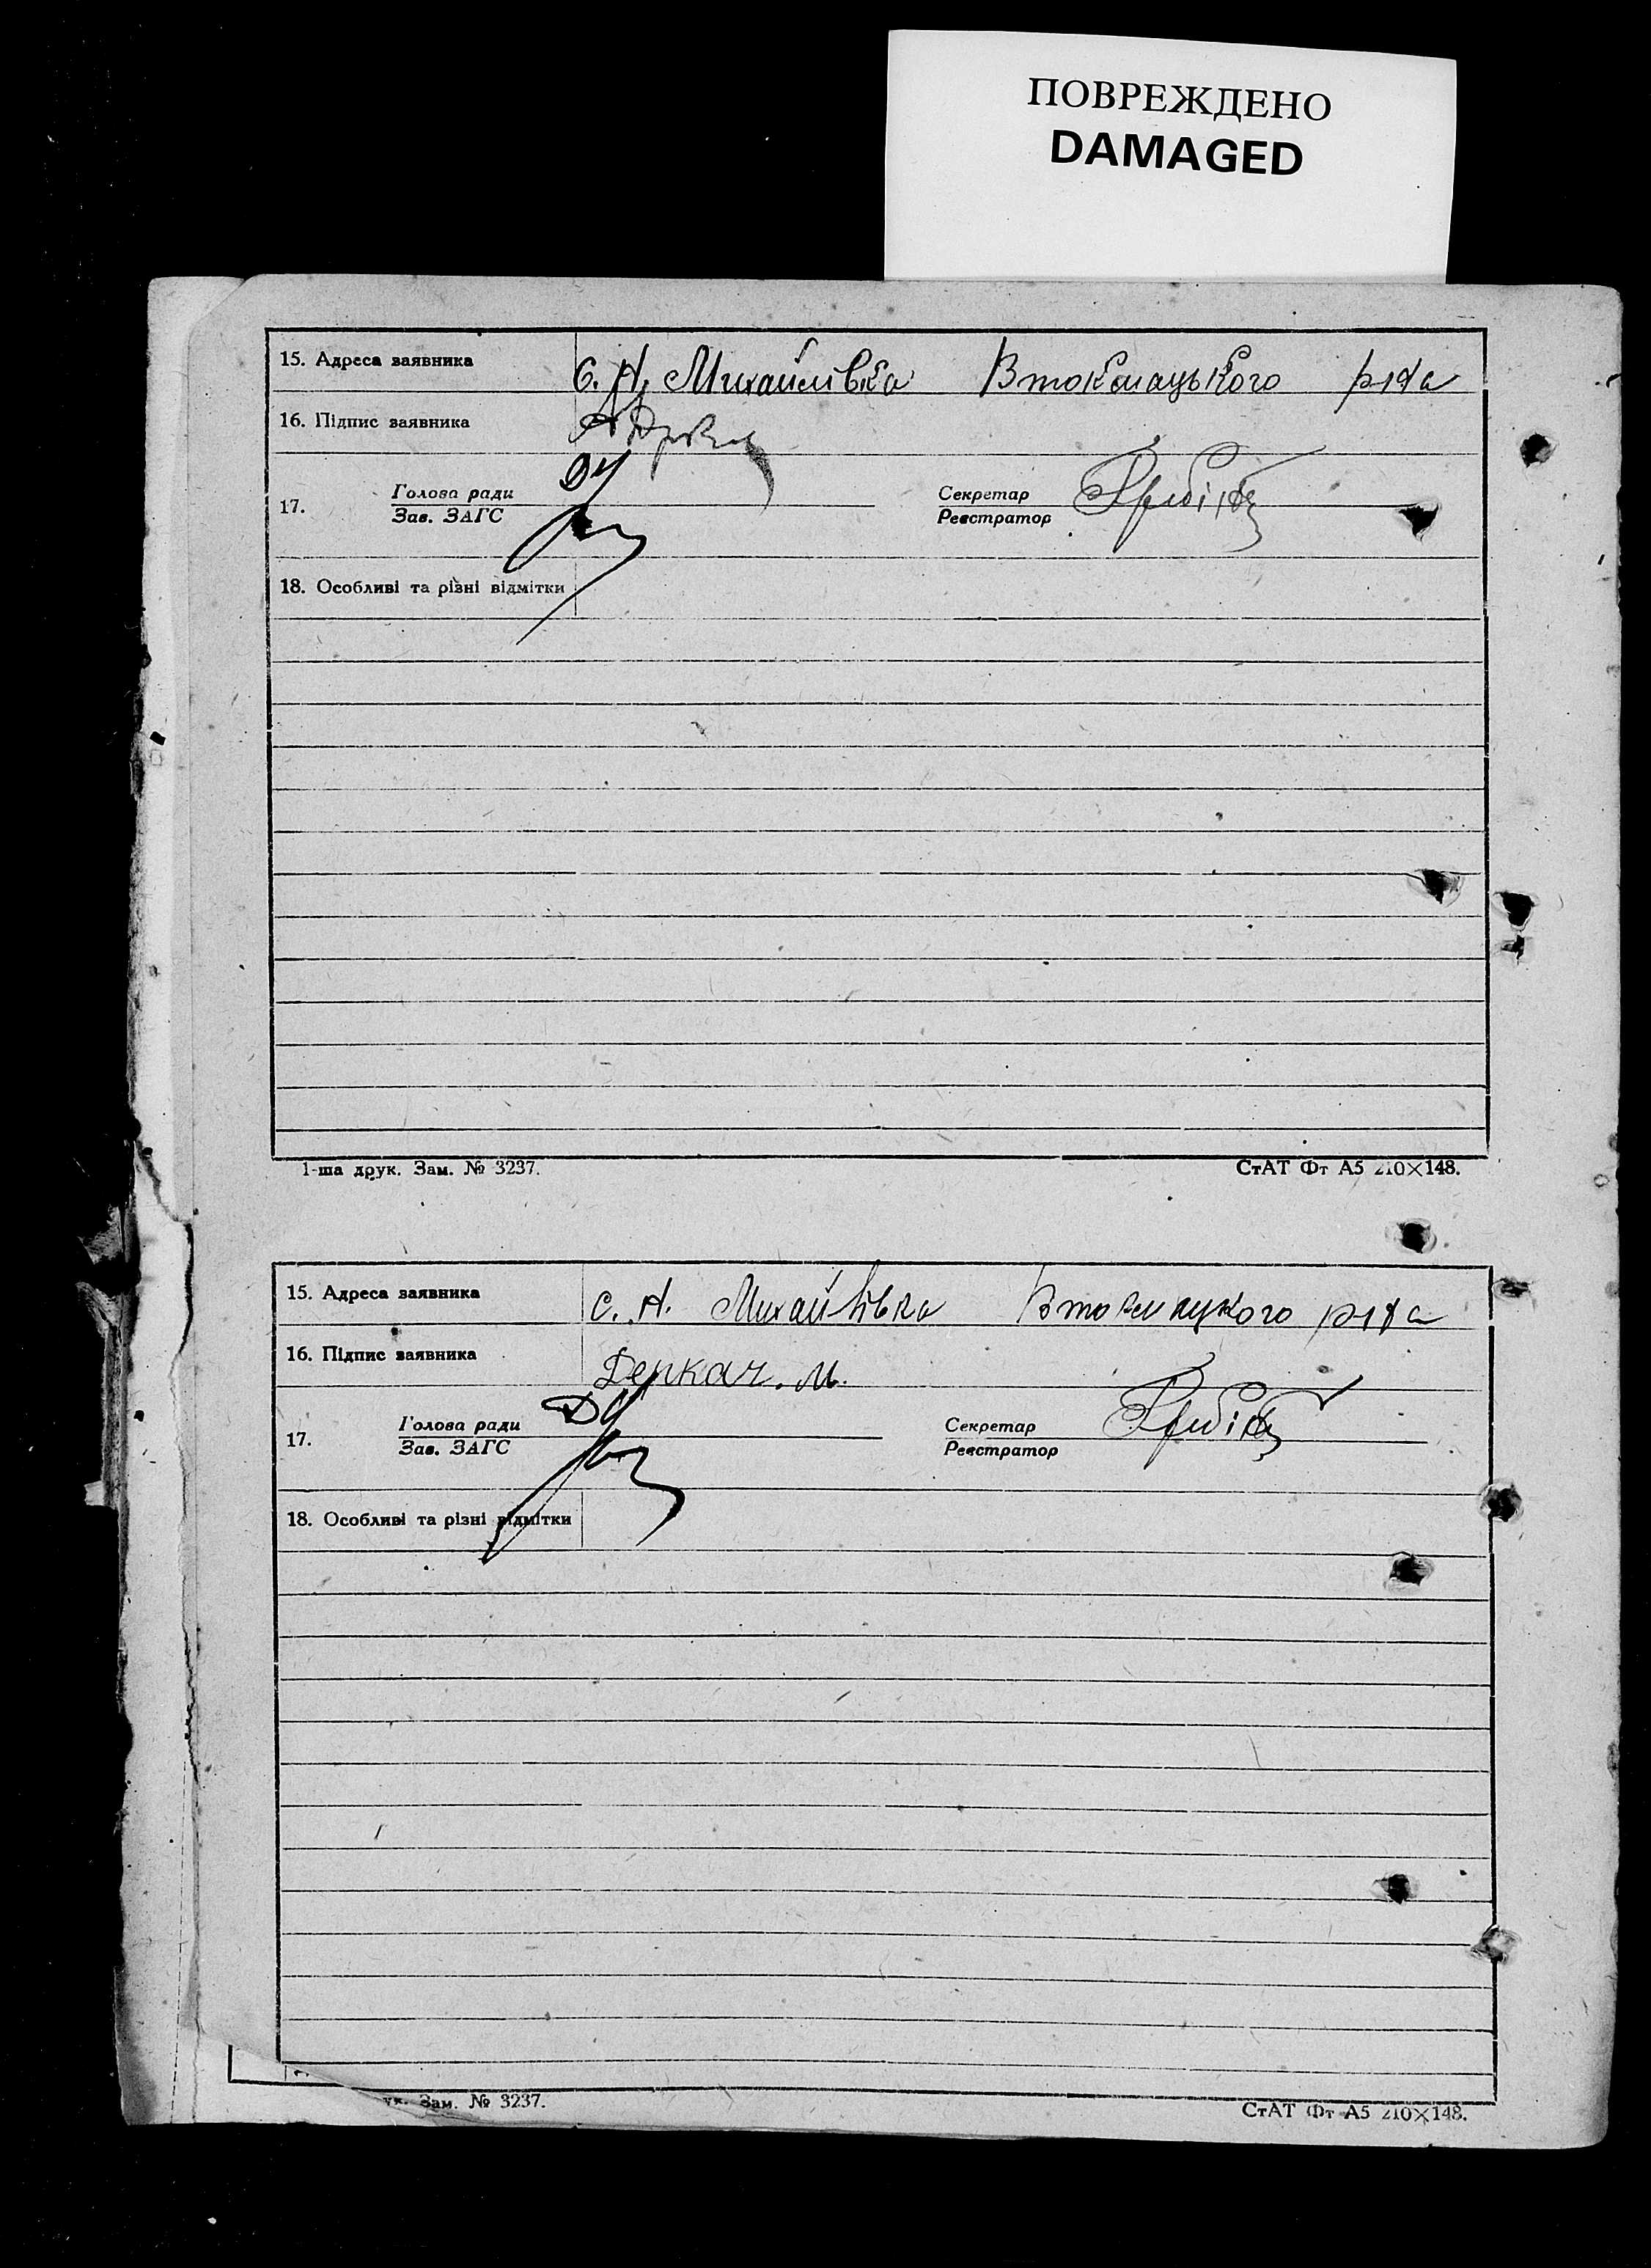 ПОВРЕЖДЕНО
DAMAGED
15. Адреса заявника с. Н. Михайлівка Втокмацького р-на
16. Підпис заявника
17. Голова ради Секретар
Зав. ЗАГС Реєстратор
18. Особливі та різні відмітки
1-ша друк. Зам. № 3237. СтАТ Фт А5 210×148.
15. Адреса заявника с. Н. Михайлівка Втокмацкого р-на
16. Підпис заявника Деркач. М.
17. Голова ради Секретар
Зав. ЗАГС Реєстратор
18. Особливі та різні відмітки
ук. Зам. № 3237. СтАТ Фт А5 210×148.